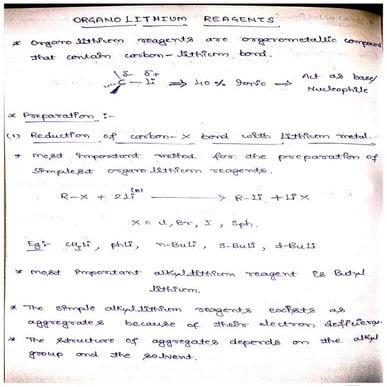 ORGANO LITHIUM REAGENTS
* Organo lithium reagents are organometallic compound
that contain carbon-lithium bond.
δ- δ+
C - Li ⇒ 40% Ionic → Act as base/
Nucleophile
* Preparation :-
(1) Reduction of carbon-X bond with Lithium metal.
* most important method for the preparation of
simplest organo lithium reagents.
R-X + 2Li(s) → R-Li + LiX
X = Cl, Br, I, Sph.
Eg:- CH3Li, phLi, n-BuLi, S-BuLi, t-BuLi
* most important alkyl lithium reagent is Butyl
lithium.
* The simple alkyl lithium reagents exists as
aggregates because of their electron deficiency.
* The structure of aggregates depends on the alkyl
group and the solvent.